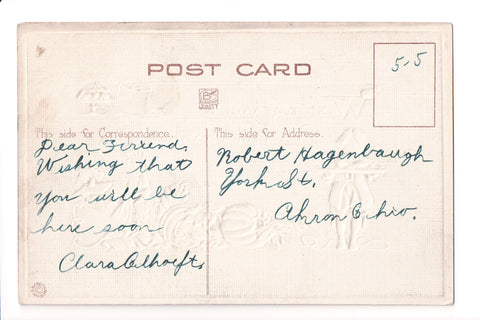 POST CARD
5-5
This side for Correspondence.
This side for Address.
Dear Friend,
Wishing that
you will be
here soon
Clara
Robert Hagenbaugh
York St.
Akron Ohio.